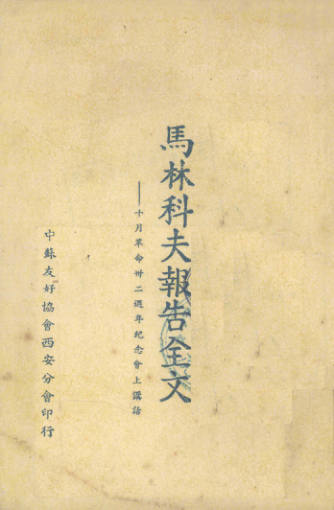 馬林科夫報告全文
——十月革命卅二週年紀念會上講話
中蘇友好協會西安分會印行